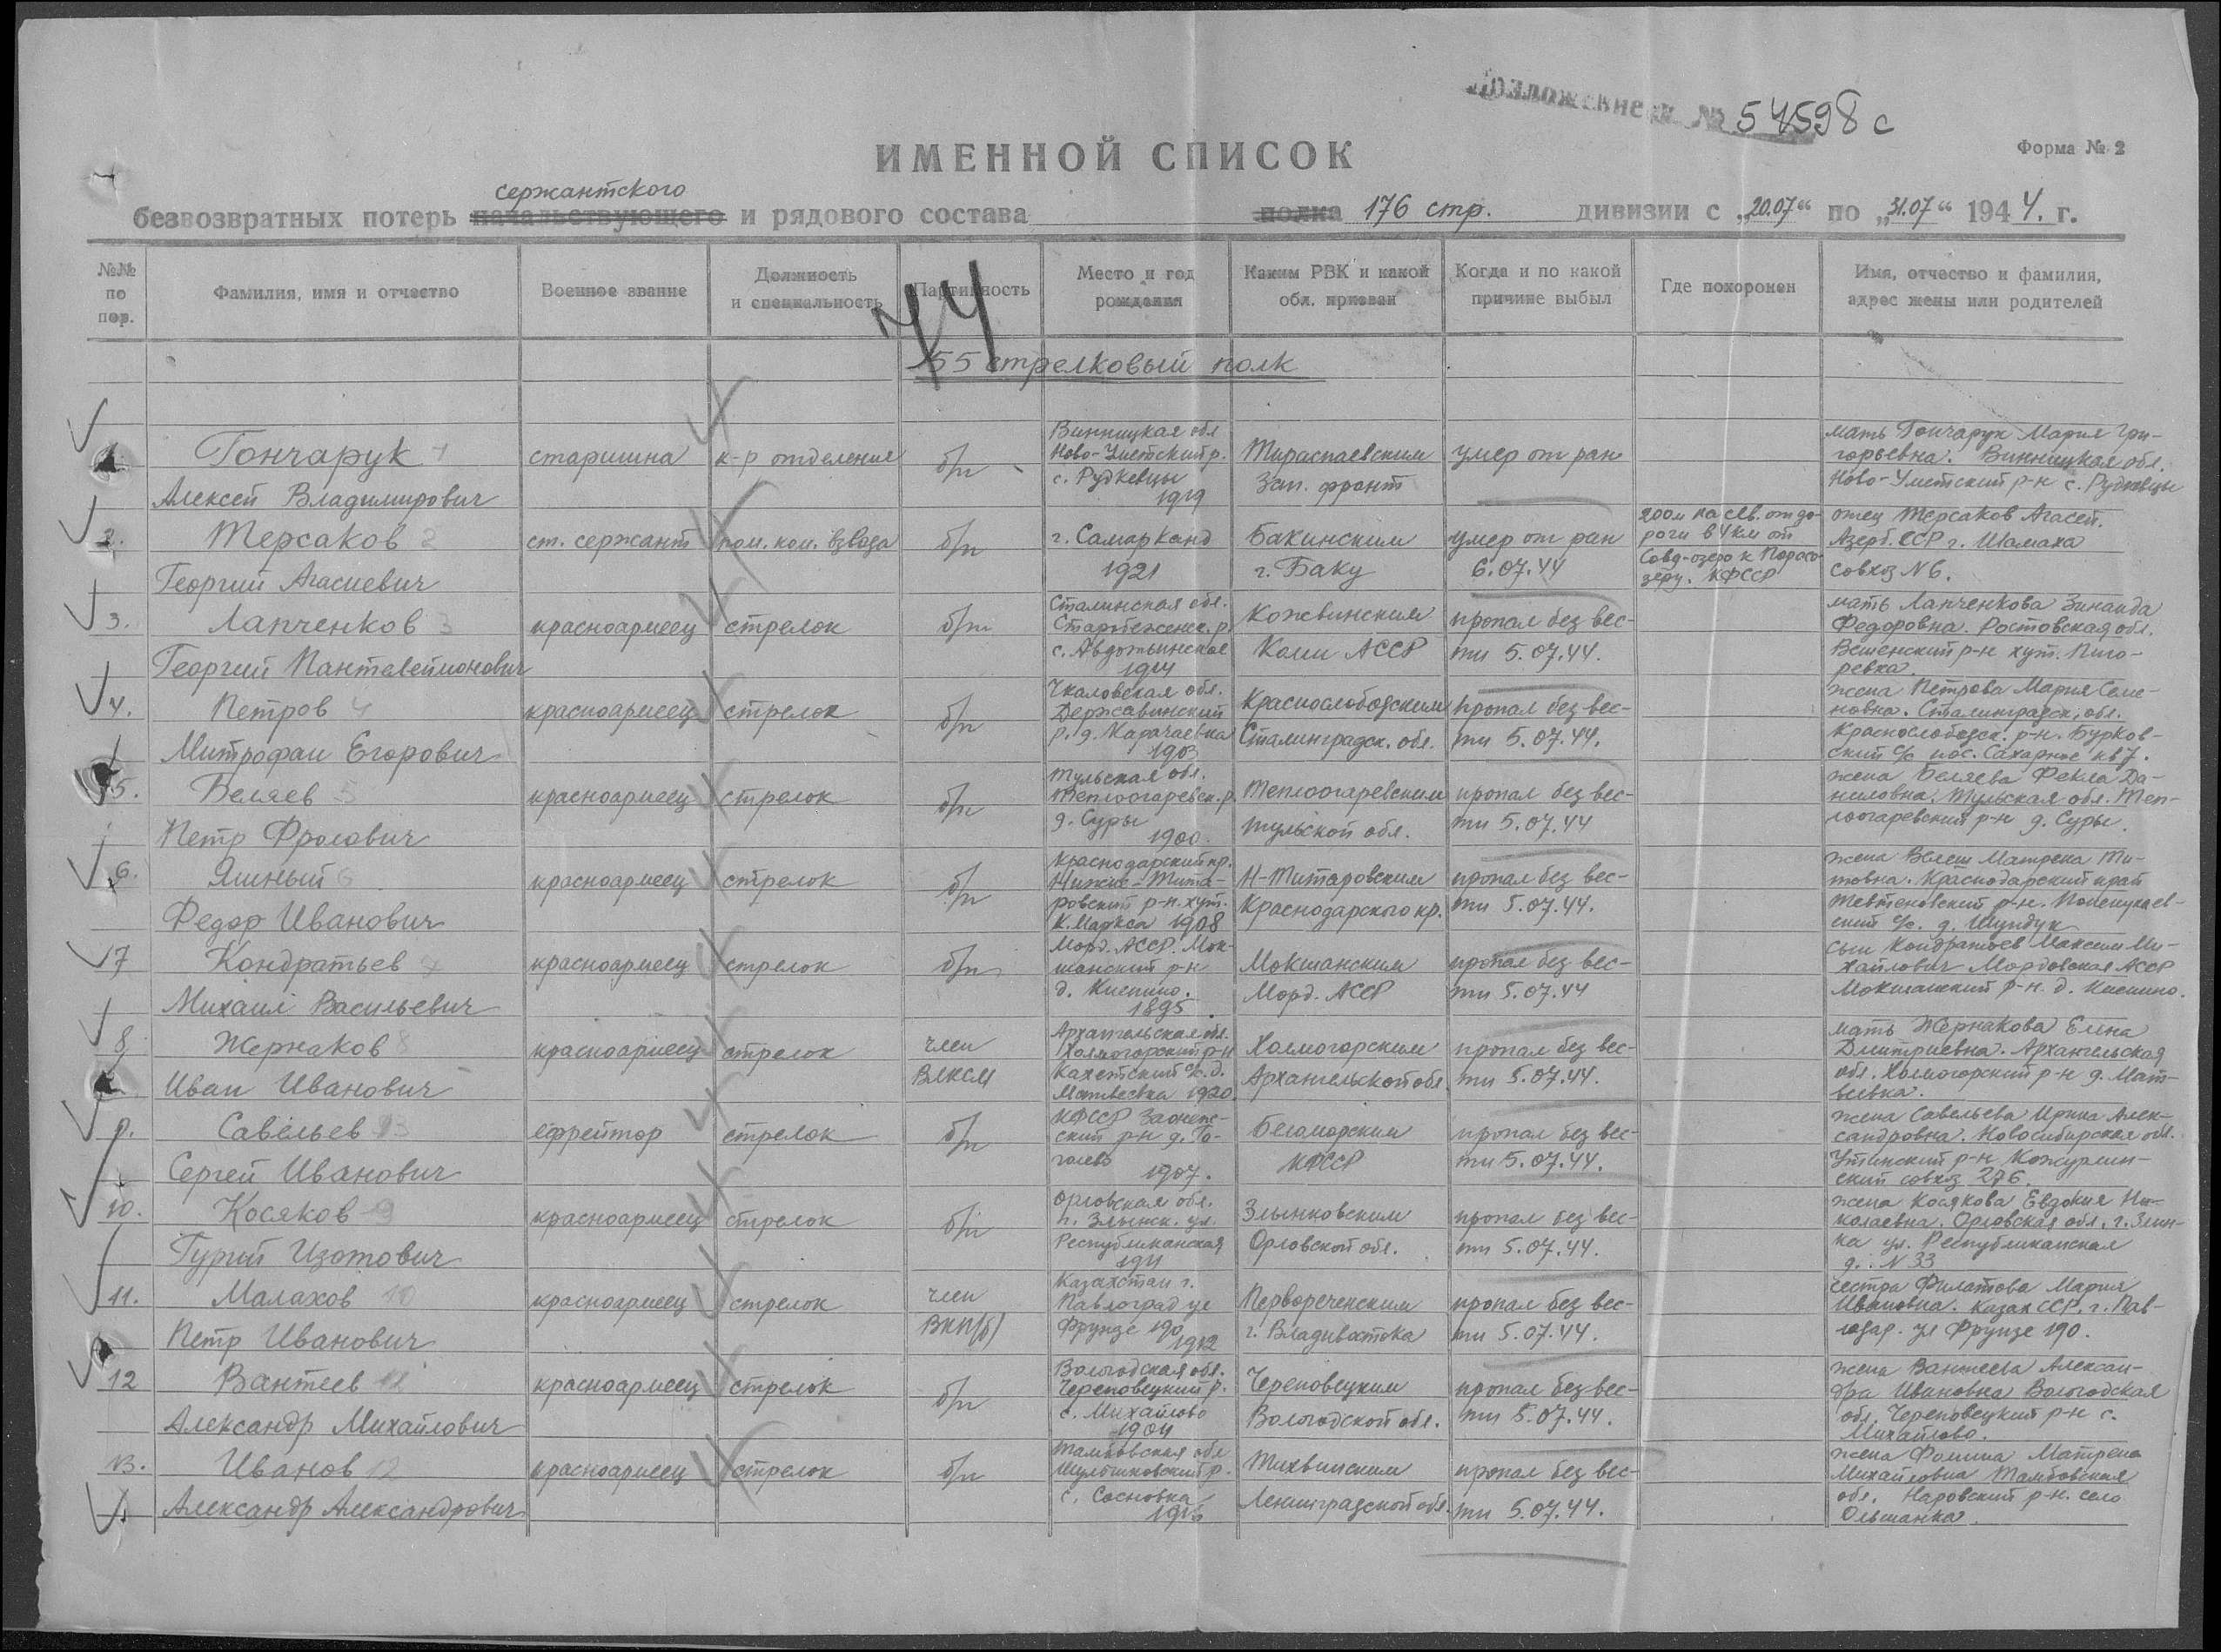 № 54598 с
Форма № 2
ИМЕННОЙ СПИСОК
сержантского
безвозвратных потерь начальствующего и рядового состава полка 176 стр. дивизии с „20.07“ по „31.07“ 1944. г.
№№ по пор.
Фамилия, имя и отчество
Военное звание
Должность и специальность
Партийность
Место и год рождения
Каким РВК и какой обл. призван
Когда и по какой причине выбыл
Где похоронен
Имя, отчество и фамилия, адрес жены или родителей
44
55 стрелковый полк
1. Гончарук 1
Алексей Владимирович
старшина
к-р отделения
б/п
Винницкая обл
с. Рудковцы
1919
Зап. фронт
умер от ран
мать Гончарук Мария Гри-
горьевна. Винницкая обл.
2. Терсаков 2
Георгий Агасиевич
ст. сержант
пом. ком. взвода
б/п
г. Самарканд
1921
Бакинским
г. Баку
умер от ран
6.07.44
200 м на сев. от до-
роги в 4 км от
зеру. КФССР
отец Терсаков Агасей.
Азерб. ССР г. Шамаха
совхоз N 6.
3. Лапченков 3
Георгий Пантелеймонович
красноармеец
стрелок
б/п
Сталинская обл.
1914
Кожвинским
Коми АССР
пропал без вес-
ти 5.07.44.
мать Лапченкова Зинаида
Федоровна. Ростовская обл.
Вешенский р-н хут. Пиго-
ревка.
4. Петров 4
Митрофан Егорович
красноармеец
стрелок
б/п
Чкаловская обл.
Державинский
р. д. Карачаевка
1903
Краснослободским
Сталинградск. обл.
пропал без вес-
ти 5.07.44.
жена Петрова Мария Семе-
новна. Сталинградск. обл.
Краснослободск. р-н. Бурков-
ский с/с пос. Сахарное кв 7.
5. Беляев 5
Петр Фролович
красноармеец
стрелок
б/п
Тульская обл.
Теплоогаревск. р.
д. Суры
1900.
Теплоогаревским
Тульской обл.
пропал без вес-
ти 5.07.44
жена Беляева Фекла Да-
ниловна. Тульская обл. Теп-
лоогаревский р-н д. Суры.
6. Яшный 6
Федор Иванович
красноармеец
стрелок
б/п
Краснодарский кр.
Нижне-Тита-
ровский р-н. хут.
К. Маркса 1908
Н-Титаровским
Краснодарского кр.
пропал без вес-
ти 5.07.44.
товна. Краснодарский край
7 Кондратьев 7
Михаил Васильевич
красноармеец
стрелок
б/п
Морд. АССР. Мок-
шанский р-н
1895
Мокшанским
Морд. АССР
пропал без вес-
ти 5.07.44
сын Кондратьев Максим Ми-
хайлович Мордовская АССР
8. Жернаков 8
Иван Иванович
красноармеец
стрелок
член
ВЛКСМ
Архангельская обл.
Холмогорский р-н
Матвеевка 1920.
Холмогорским
Архангельской обл.
пропал без вес-
ти 5.07.44.
мать Жернакова Елена
Дмитриевна. Архангельская
обл. Холмогорский р-н д. Мат-
веевка.
9. Савельев 13
Сергей Иванович
ефрейтор
стрелок
б/п
КФССР Заонеж-
ский р-н д. Го-
голево
1907.
Беломорским
КФССР
пропал без вес-
ти 5.07.44.
жена Савельева Ирина Алек-
сандровна. Новосибирская обл.
ский совхоз 276.
10. Косяков 9
Гурий Изотович
красноармеец
стрелок
б/п
Орловская обл.
г. Злынк. ул.
Республиканская
1911
Злынковским
Орловской обл.
пропал без вес-
ти 5.07.44.
жена Косякова Евдокия Ни-
колаевна. Орловская обл. г. Злын-
ка ул. Республиканская
д. N 33
11. Малахов 10
Петр Иванович
красноармеец
стрелок
член
ВКП(б)
Казахстан г.
Павлоград ул
Фрунзе 190
1912
Первореченским
г. Владивостока
пропал без вес-
ти 5.07.44.
сестра Филатова Мария
Ивановна. Казах ССР. г. Пав-
лодар. ул Фрунзе 190.
12 Вантеев 11
Александр Михайлович
красноармеец
стрелок
б/п
Вологодская обл.
Череповецкий р.
с. Михайлово
1904
Череповецким
Вологодской обл.
пропал без вес-
ти 5.07.44.
жена Вантеева Алексан-
дра Ивановна Вологодская
обл. Череповецкий р-н с.
Михайлово.
13. Иванов 12
Александр Александрович
красноармеец
стрелок
б/п
Тамбовская обл
с. Сосновка
Тихвинским
Ленинградской обл.
пропал без вес-
ти 5.07.44.
жена Фомина Матрена
Михайловна Тамбовская
обл. р-н. село
Ольшанка.